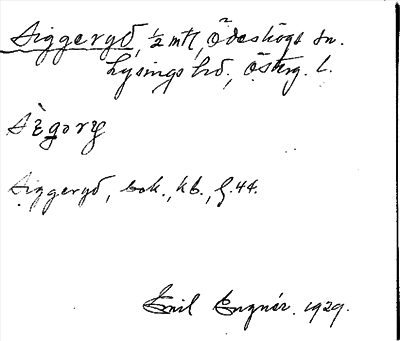 Siggeryd, ½ mtl, Ödeshögs sn.
Lysings hd., Österg. l.
Siggeryd, bok., kb., f. 44.
Emil Engnér. 1929.